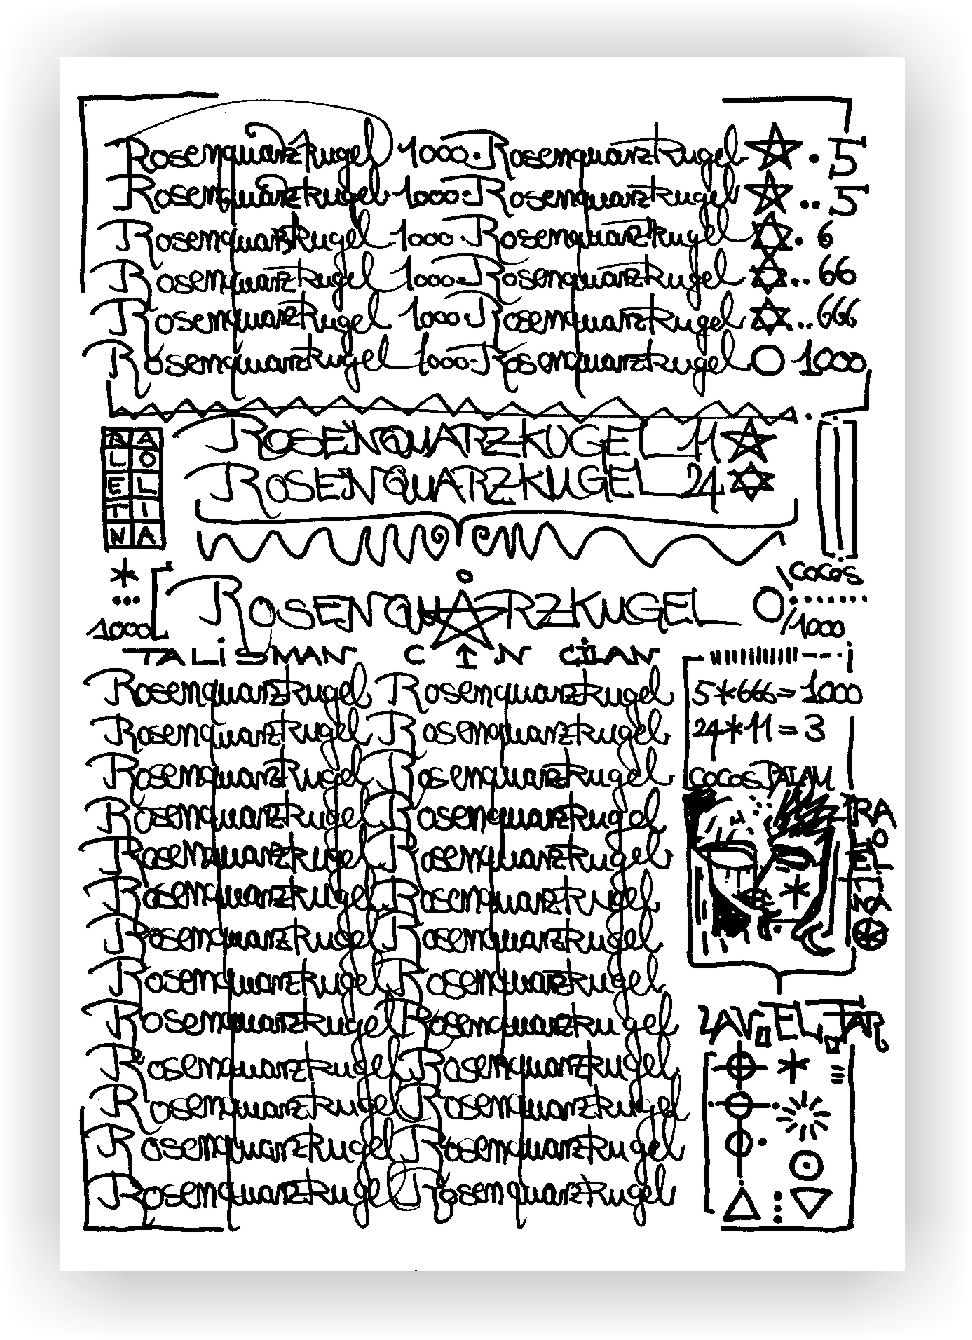 Rosenquarzkugel 1000. Rosenquarzkugel . 5
Rosenquarzkugel 1000. Rosenquarzkugel .. 5
Rosenquarzkugel 1000. Rosenquarzkugel . 6
Rosenquarzkugel 1000. Rosenquarzkugel .. 66
Rosenquarzkugel 1000. Rosenquarzkugel .. 666
Rosenquarzkugel 1000. Rosenquarzkugel O 1000
ROSENQUARZKUGEL 11
ROSENQUARZKUGEL 24
A A
L O
E L
T I
N A
COCOS
1000
ROSENQUARZKUGEL
1000
TALISMAN C I N CILAN
Rosenquarzkugel Rosenquarzkugel
Rosenquarzkugel Rosenquarzkugel
Rosenquarzkugel Rosenquarzkugel
Rosenquarzkugel Rosenquarzkugel
Rosenquarzkugel Rosenquarzkugel
Rosenquarzkugel Rosenquarzkugel
Rosenquarzkugel Rosenquarzkugel
Rosenquarzkugel Rosenquarzkugel
Rosenquarzkugel Rosenquarzkugel
Rosenquarzkugel Rosenquarzkugel
Rosenquarzkugel Rosenquarzkugel
Rosenquarzkugel Rosenquarzkugel
Rosenquarzkugel Rosenquarzkugel
5*666=1000
24*11=3
COCOS